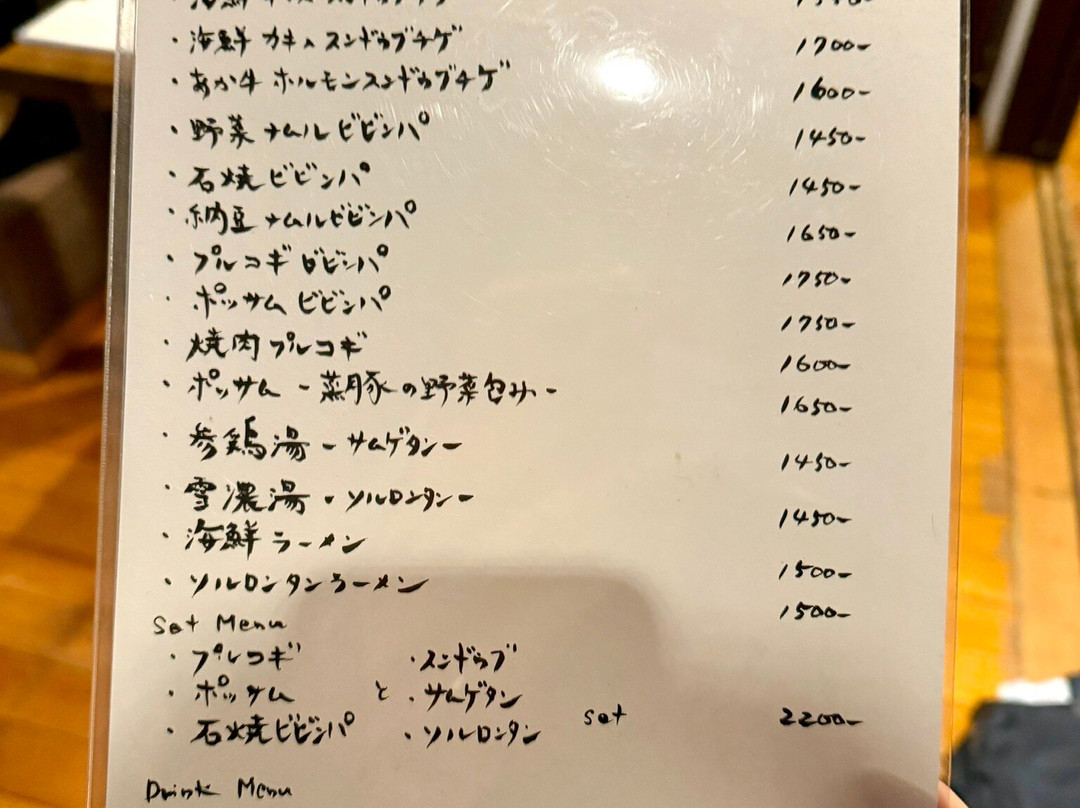 ・海鮮 カキ入 スンドゥブチゲ 1700-
・あか牛 ホルモンスンドゥブチゲ 1600-
・野菜 ナムル ビビンパ 1450-
・石焼 ビビンパ 1450-
・納豆 ナムルビビンパ 1650-
・プルコギ ビビンパ 1750-
・ポッサム ビビンパ 1750-
・焼肉 プルコギ 1600-
・ポッサム -蒸豚の野菜包み- 1650-
・参鶏湯 -サムゲタン- 1450-
・雪濃湯 -ソルロンタン- 1450-
・海鮮 ラーメン 1500-
・ソルロンタンラーメン 1500-
Set Menu
・プルコギ ・スンドゥブ
・ポッサム と ・サムゲタン
・石焼ビビンパ ・ソルロンタン set 2200-
Drink Menu